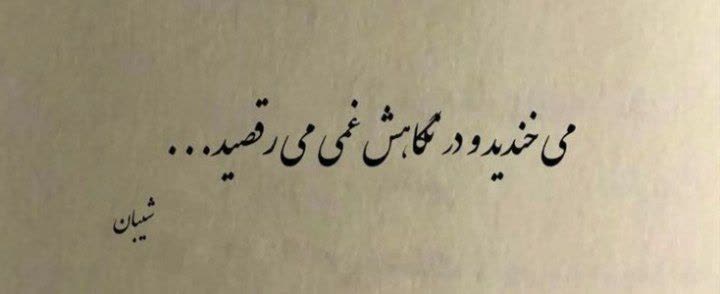 می خندید و در نگاهش غمی می رقصید...
شیبان